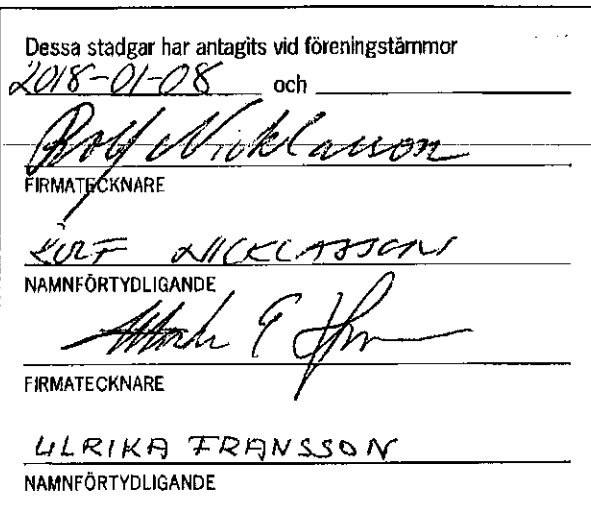 Dessa stadgar har antagits vid föreningstämmor
2018-01-08 och
Rolf Nicklasson
FIRMATECKNARE
ROLF NICKLASSON
NAMNFÖRTYDLIGANDE
FIRMATECKNARE
ULRIKA FRANSSON
NAMNFÖRTYDLIGANDE